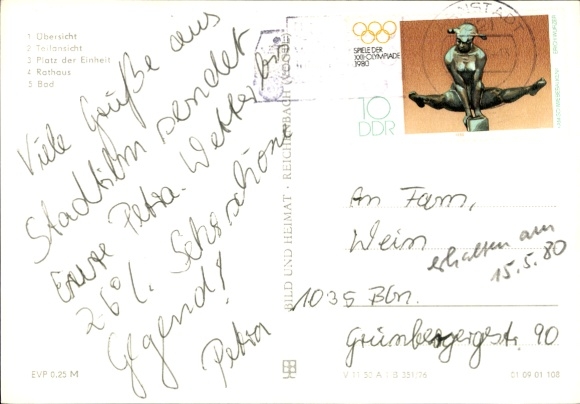 1 Übersicht
2 Teilansicht
3 Platz der Einheit
4 Rathaus
5 Bad
Viele Grüße aus
Stadtilm sendet
Eure Petra. Wetter
26%. Sehr schöne
Gegend!
Petra
EVP 0,25 M
BILD UND HEIMAT · REICHENBACH (VOGTL)
SPIELE DER
XXII. OLYMPIADE
1980
10
DDR
An Fam,
Wein
erhalten am
15.5.80
1035 Bln.
Grünbergergestr. 90
V 11 52 A 1 B 351/76
01 09 01 108